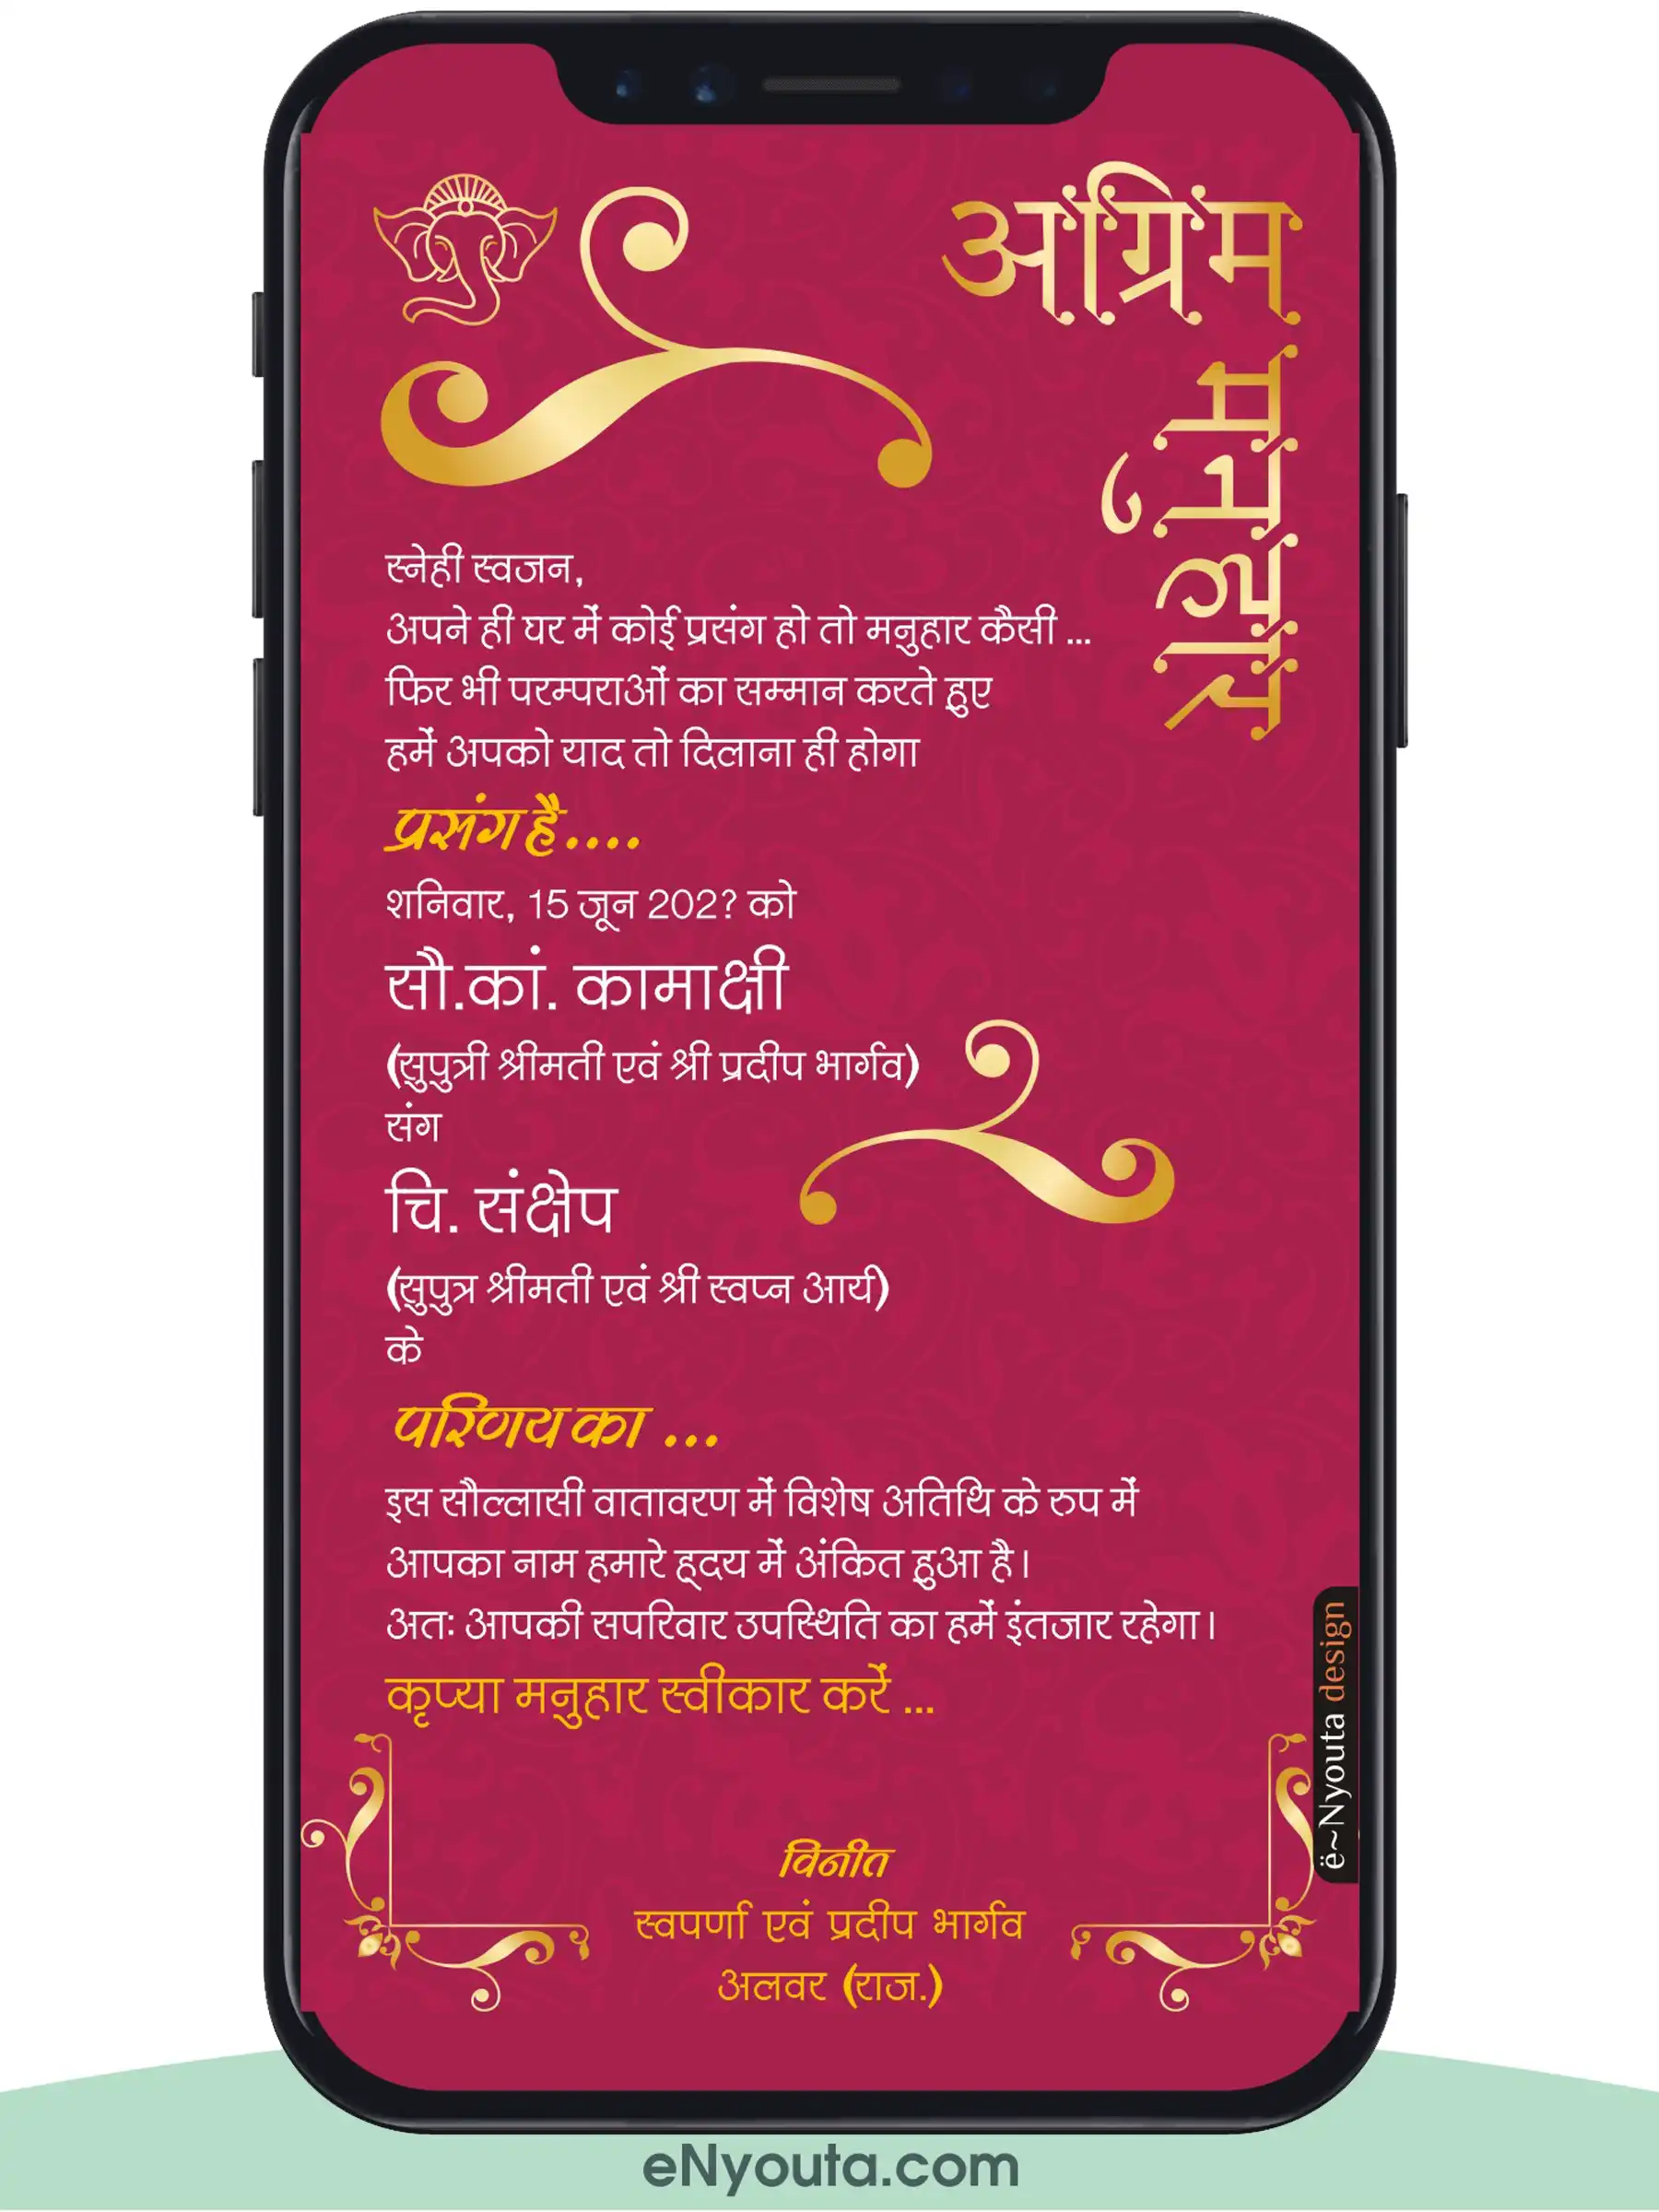 अग्रिम
मनुहार
स्नेही स्वजन,
अपने ही घर में कोई प्रसंग हो तो मनुहार कैसी ...
फिर भी परम्पराओं का सम्मान करते हुए
हमें अपको याद तो दिलाना ही होगा
प्रसंग है....
शनिवार, 15 जून 202? को
सौ.कां. कामाक्षी
(सुपुत्री श्रीमती एवं श्री प्रदीप भार्गव)
संग
चि. संक्षेप
(सुपुत्र श्रीमती एवं श्री स्वप्न आर्य)
के
परिणय का ...
इस सौल्लासी वातावरण में विशेष अतिथि के रुप में
आपका नाम हमारे ह्दय में अंकित हुआ है।
अतः आपकी सपरिवार उपस्थिति का हमें इंतजार रहेगा।
कृप्या मनुहार स्वीकार करें ...
विनीत
स्वपर्णा एवं प्रदीप भार्गव
अलवर (राज.)
ë~Nyouta design
eNyouta.com